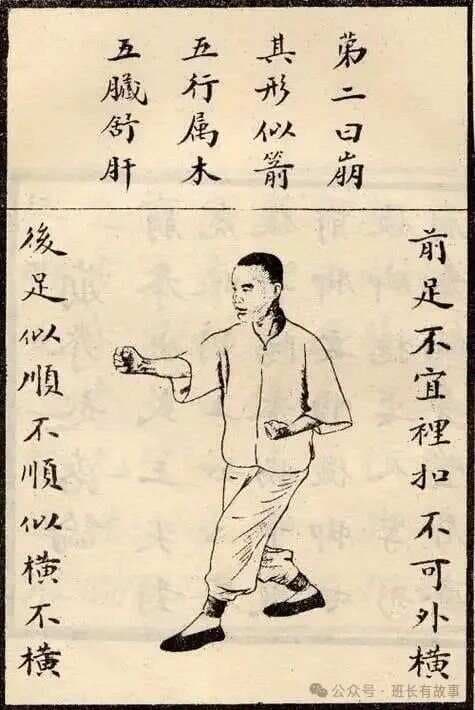 第二曰崩
其形似箭
五行属木
五臟舒肝
前足不宜裡扣不可外橫
後足似順不順似橫不橫
公众号·班长有故事